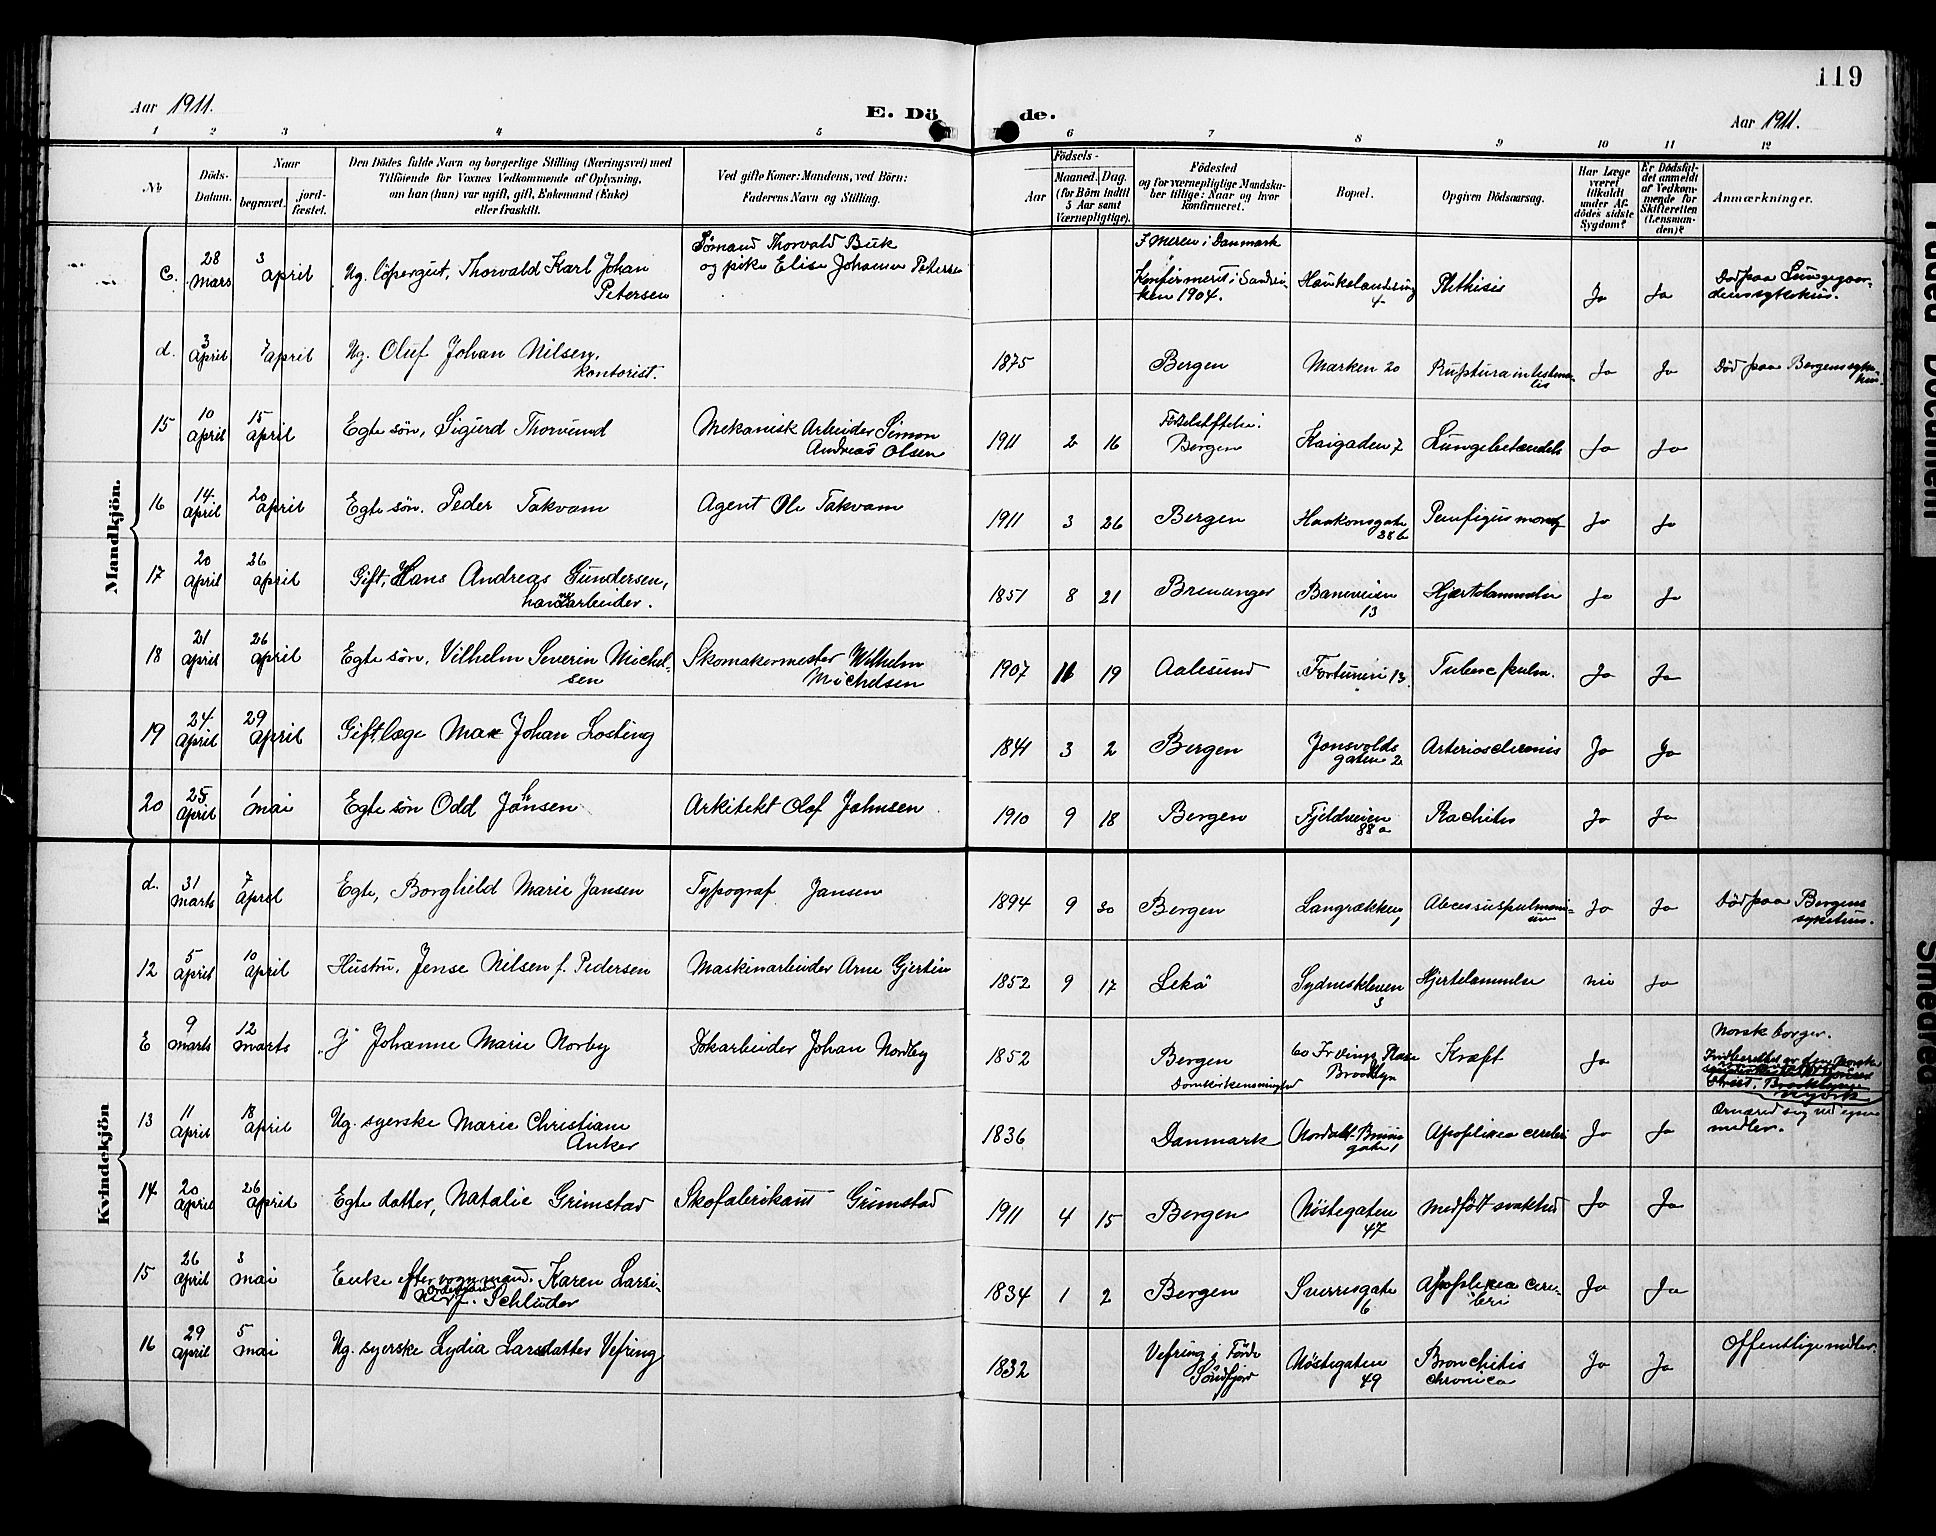 119
Aar 1911.
E. Dö de.
Aar 1911.
1 2 3 4 5 6 7 8 9 10 11 12
No
Döds-
Datum.
Naar
begravet.
jord-
fæstet.
Den Dödes fulde Navn og borgerlige Stilling (Næringsvei) med
Tilföiende for Voxnes Vedkommende af Oplysning,
om han (hun) var ugift, gift, Enkemand (Enke)
eller fraskilt.
Ved gifte Koner: Mandens, ved Börn:
Faderens Navn og Stilling.
Födsels-
Aar
Maaned. Dag.
(for Börn indtil
5 Aar samt
Værnepligtige).
Födested
og for værnepligtige Mandska-
ber tillige: Naar og hvor
konfirmeret.
Bopæl.
Opgiven Dödsaarsag.
Har Læge
været
tilkaldt
under Af-
dödes sidste
Sygdom?
Er Dödsfal-
det anmeldt
af Vedkom-
mende for
Skifteretten
(Lensman-
den)?
Anmærkninger.
Mandkjön.
c. 28 Mars 3 April Ug. löpergut, Thorvald Karl Johan
Petersen
Sömand Thorvald Buk
og pike Elise Johanne Petersen
i Danmark
Konfirmert i Sandvi-
ken 1904.
4 Phthisis Ja Ja Död paa Lungegaar-
denssykehus.
d. 3 April 7 April Ug. Oluf Johan Nilsen,
kontorist.
1875 Bergen Marken 20 Ruptura intestina-
lis Ja Ja Död paa Bergenssyke-
hus.
15 10 April 15 April Egte sön, Sigurd Thorvund Mekanisk Arbeider Simon
Andreas Olsen
1911 2 16 Bergen Kaigaden 7 Lungebetændels Ja Ja
16 14 April 20 April Egte sön. Peder Takvam Agent Ole Takvam 1911 3 26 Bergen Haakonsgate
28 b Ja Ja
17 20 April 26 April Gift, Hans Andreas Gundersen,
havnearbeider.
1851 8 21 Bremanger Baneveien
13 Hjertelammelse Ja Ja
18 21 April 26 April Egte sön, Vilhelm Severin Michel-
sen
Skomakermester Wilhelm
Michelsen
1907 11 19 Aalesund 13 Tuberc pulm. Ja Ja
19 24 April 29 April Gift læge Max Johan Losting 1841 3 2 Bergen Jonsvolds
gaten 2 Arteriosclerosis Ja Ja
20 25 April 1 Mai Egte sön Odd Johnsen Arkitekt Olaf Johnsen 1910 9 18 Bergen Fjeldveien
88 a Rachitis Ja Ja
Kvindekjön
d. 31 Marts 7 April Egte, Borghild Marie Jansen Typograf Jansen 1894 9 30 Bergen Langrækken Abcessus pulmoni-
um Ja Ja Död paa Bergens
sykehus.
12 5 April 10 April Hustru, Jense Nilsen f. Pedersen Maskinarbeider Arne Gjertin 1852 9 17 Lekö Sydneskleven
3 Hjertelammelse nei Ja
E 9 Marts 12 Marts "G" Johanne Marie Norby Dokarbeider Johan Nordby 1852 Bergen
Domkirkens menighed
60 Irvings Place
Brooklyn Kræft Ja Norsk borger.
Indberettet av den Norske
Street, Brooklyn
Nyork
13 11 April 18 April Ug. syerske Marie Christiane
Anker
1836 Danmark Nordahl-Bruns
gate 1 Apoplexia cerebri Ja Ja Ernæred sig ved egne
midler.
14 20 April 26 April Egte datter, Natalie Grimstad Skofabrikant Grimstad 1911 4 15 Bergen Nöstegaten
47 Medfödt svakhed Ja Ja
15 26 April 3 Mai Enke efter vognmand. Karen
f. Schlüter
1834 1 2 Bergen Sverresgate
6 Apoplexia cere-
bri Ja Ja
16 29 April 5 Mai Ug. syerske Lydia Larsdatter Vefring 1832 Vefring i Förde
Söndfjord
Nöstegaten
49 Bronchitis
chronica Ja Ja Offentlige midler.